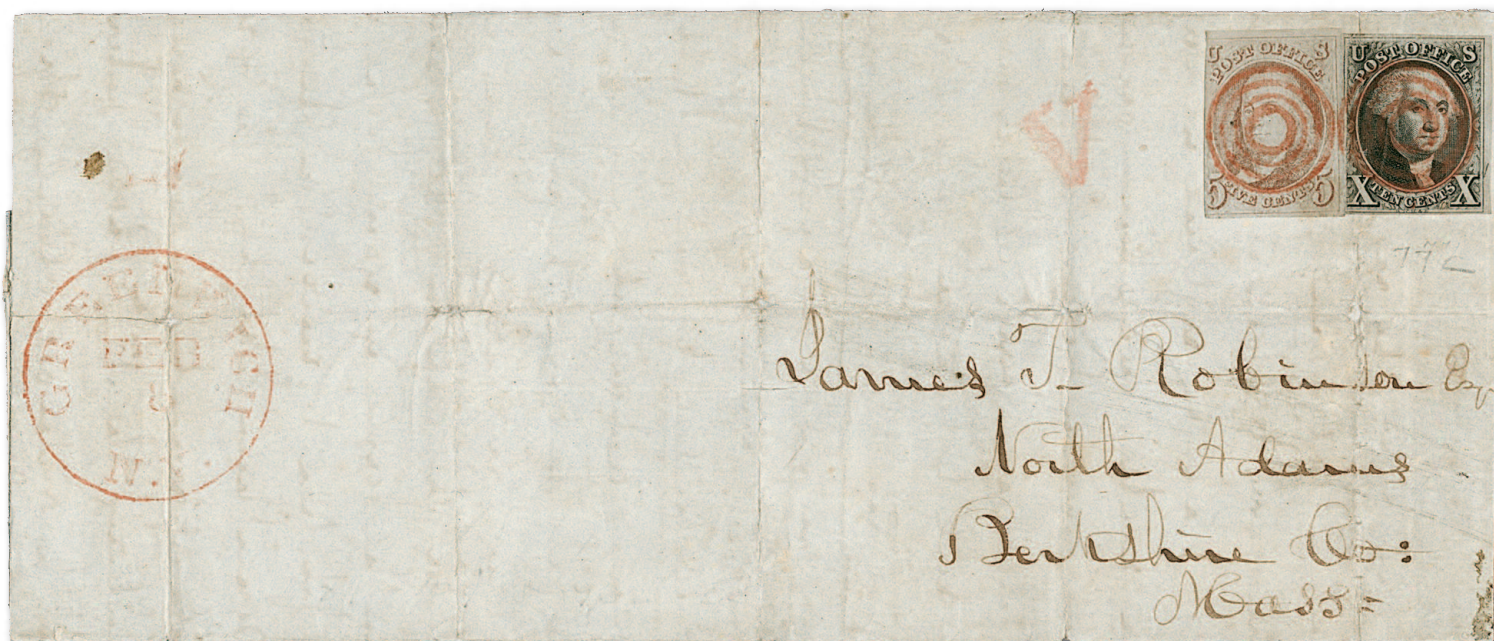 U S
POST OFFICE
5 FIVE CENTS 5
U S
POST OFFICE
X TEN CENTS X
772
GREENWICH
FEB
N.Y.
James T. Robinson Esq
North Adams
Berkshire Co:
Mass=